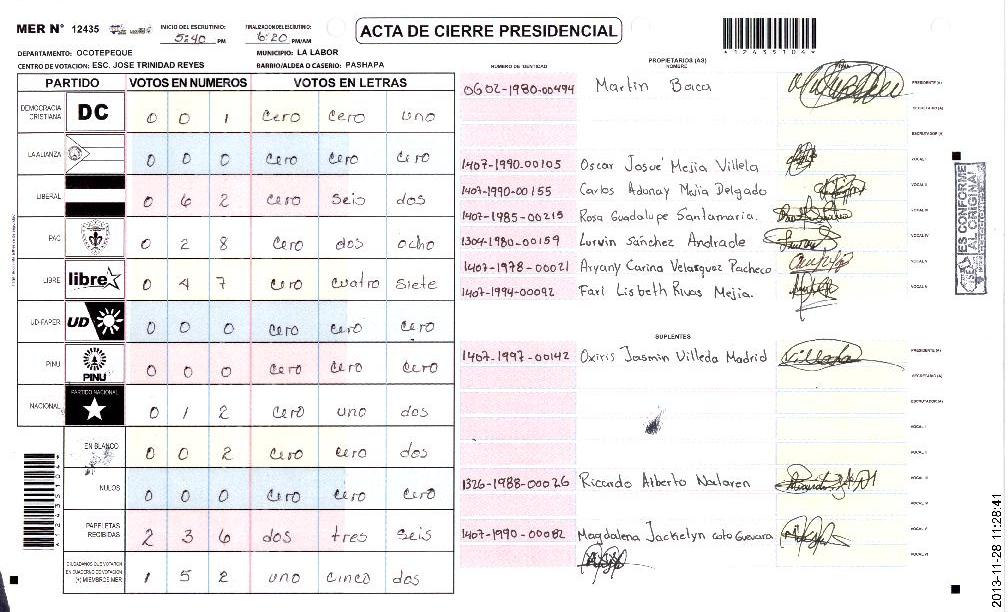 MER N° 12435 INICIO DEL ESCRUTINIO: 5:40 PM FINALIZACION DEL ESCRUTINIO: 6:20 PM/AM
ACTA DE CIERRE PRESIDENCIAL
DEPARTAMENTO: OCOTEPEQUE MUNICIPIO: LA LABOR
CENTRO DE VOTACION: ESC. JOSE TRINIDAD REYES BARRIO/ALDEA O CASERIO: PASHAPA
PARTIDO VOTOS EN NUMEROS VOTOS EN LETRAS
DEMOCRACIA CRISTIANA DC 0 0 1 cero cero uno
LA ALIANZA 0 0 0 cero cero cero
LIBERAL 0 6 2 cero seis dos
PAC 0 2 8 cero dos ocho
LIBRE libre 0 4 7 cero cuatro siete
UD-FAPER UD 0 0 0 cero cero cero
PINU PINU 0 0 0 cero cero cero
NACIONAL PARTIDO NACIONAL 0 1 2 cero uno dos
EN BLANCO 0 0 2 cero cero dos
NULOS 0 0 0 cero cero cero
PAPELETAS RECIBIDAS 2 3 6 dos tres seis
CIUDADANOS QUE VOTARON EN CUADERNO DE VOTACION (+) MIEMBROS MER 1 5 2 uno cinco dos
PROPIETARIOS (AS)
NUMERO DE IDENTIDAD NOMBRE
0602-1980-00494 Martin Baca PRESIDENTE (A)
SECRETARIO (A)
ESCRUTADOR (A)
1407-1990-00105 Oscar Josué Mejia Villela VOCAL I
1407-1990-00155 Carlos Adonay Mejia Delgado VOCAL II
1407-1985-00215 Rosa Guadalupe Santamaria. VOCAL III
1304-1980-00159 Lurvin Sánchez Andrade VOCAL IV
1407-1978-00021 Aryany Carina Velasquez Pacheco VOCAL V
1407-1994-00092 Farl Lisbeth Rivas Mejia. VOCAL VI
SUPLENTES
1407-1997-00142 Oxiris Jasmin Villeda Madrid Villeda PRESIDENTE (A)
SECRETARIO (A)
ESCRUTADOR (A)
VOCAL I
VOCAL II
1326-1988-00026 Riccardo Alberto VOCAL III
VOCAL IV
1407-1990-00082 Magdalena Jackelyn coto Guevara VOCAL V
VOCAL VI
*12435104*
*12435104*
ES CONFORME AL ORIGINAL
2013-11-28 11:28:41